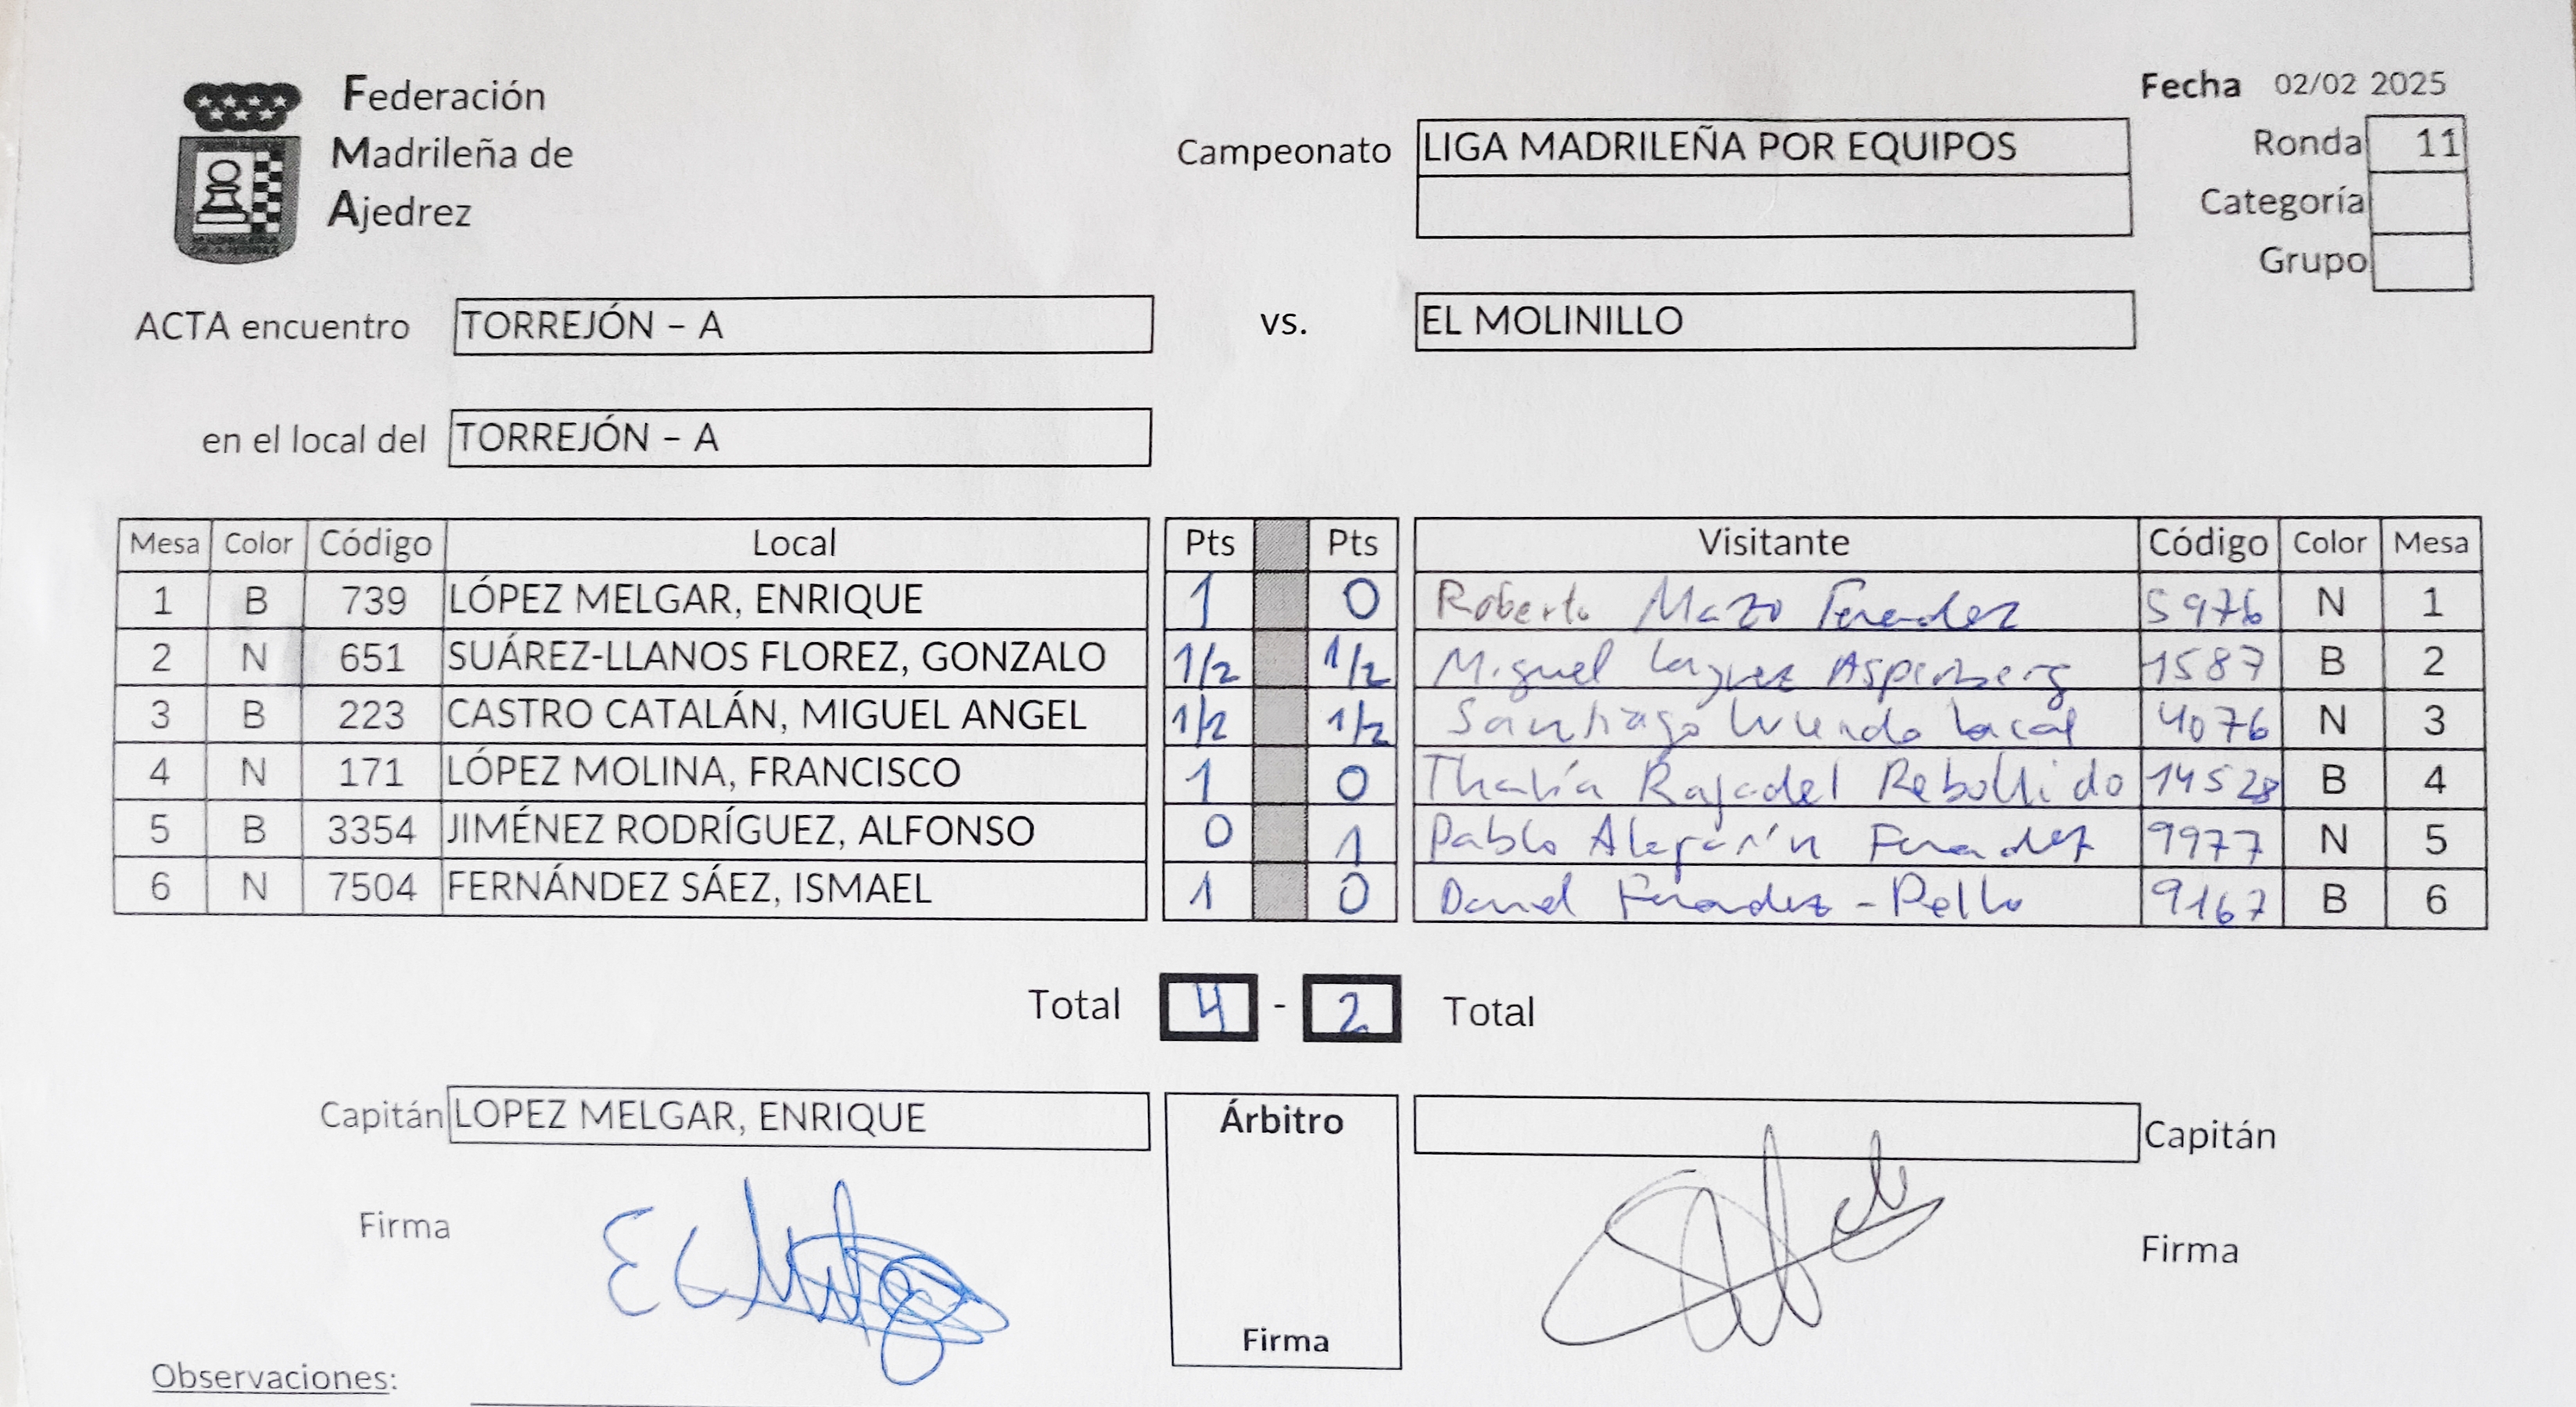 Federación
Madrileña de
Ajedrez
Fecha 02/02 2025
Campeonato LIGA MADRILEÑA POR EQUIPOS
Ronda 11
Categoría
Grupo
ACTA encuentro TORREJÓN – A vs. EL MOLINILLO
en el local del TORREJÓN – A
Mesa Color Código Local Pts Pts Visitante Código Color Mesa
1 B 739 LÓPEZ MELGAR, ENRIQUE 1 0 Roberto Mazo Fernandez 5976 N 1
2 N 651 SUÁREZ-LLANOS FLOREZ, GONZALO 1/2 1/2 Miguel 1587 B 2
3 B 223 CASTRO CATALÁN, MIGUEL ANGEL 1/2 1/2 Santiago 4076 N 3
4 N 171 LÓPEZ MOLINA, FRANCISCO 1 0 Thalía Rajadel Rebollido 14528 B 4
5 B 3354 JIMÉNEZ RODRÍGUEZ, ALFONSO 0 1 Pablo Fernandez 9977 N 5
6 N 7504 FERNÁNDEZ SÁEZ, ISMAEL 1 0 David Fernandez - Pello 9167 B 6
Total 4 - 2 Total
Capitán LOPEZ MELGAR, ENRIQUE Árbitro Capitán
Firma Firma
Firma
Observaciones: